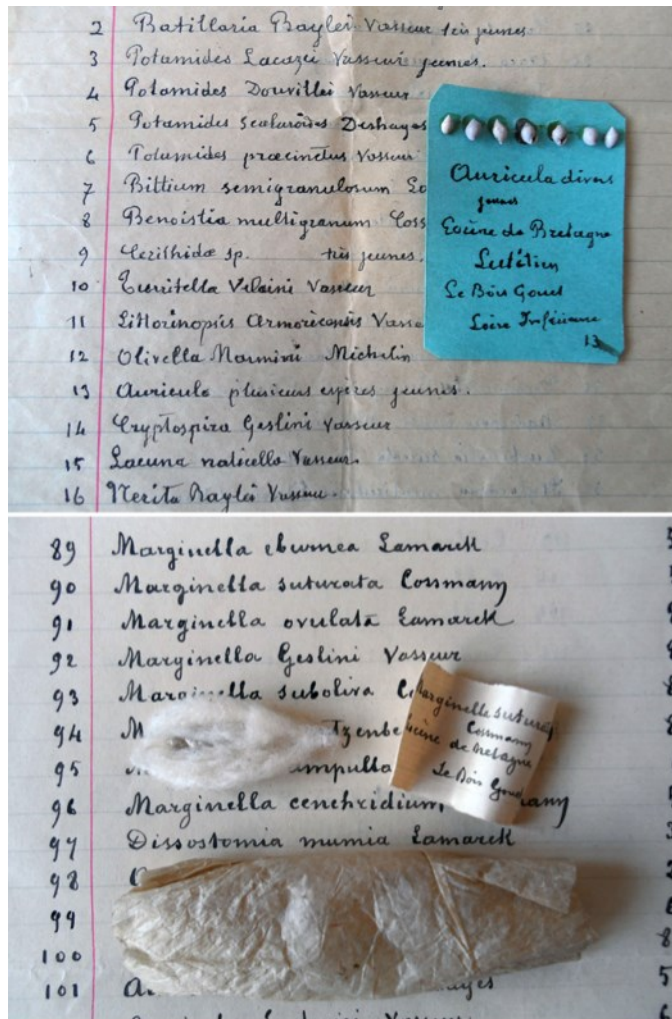 2 Batillaria Baylei Vasseur très jeunes.
3 Potamides Lacazei Vasseur jeunes.
4 Potamides Douvillei Vasseur
5 Potamides scalaroides Deshayes
6 Potamides præcinctus Vasseur
7 Bittium semigranulosum
8 Benoistia multigranum Coss
9 Cerithidæ sp. très jeunes.
10 Turritella Velaini Vasseur
11 Littorinopsis Armoricensis Vass
12 Olivella Marmini Michelin
13 Auricula plusieurs espèces jeunes.
14 Cryptospira Geslini Vasseur
15 Lacuna naticella Vasseur.
16 Nerita Baylei Vasseur.
Auricula divers
jeunes
Eocène de Bretagne
Lutétien
Le Bois Gouet
Loire Inférieure
13
89 Marginella eburnea Lamarck
90 Marginella suturata Cossmann
91 Marginella ovulata Lamarck
92 Marginella Geslini Vasseur
93 Marginella suboliva
94
95 ampulla
96 Marginella cenchridium
97 Dissostomia mumia Lamarck
98
99
100
101
Marginella suturata
Cossmann
Eocène de Bretagne
Le Bois Gouet